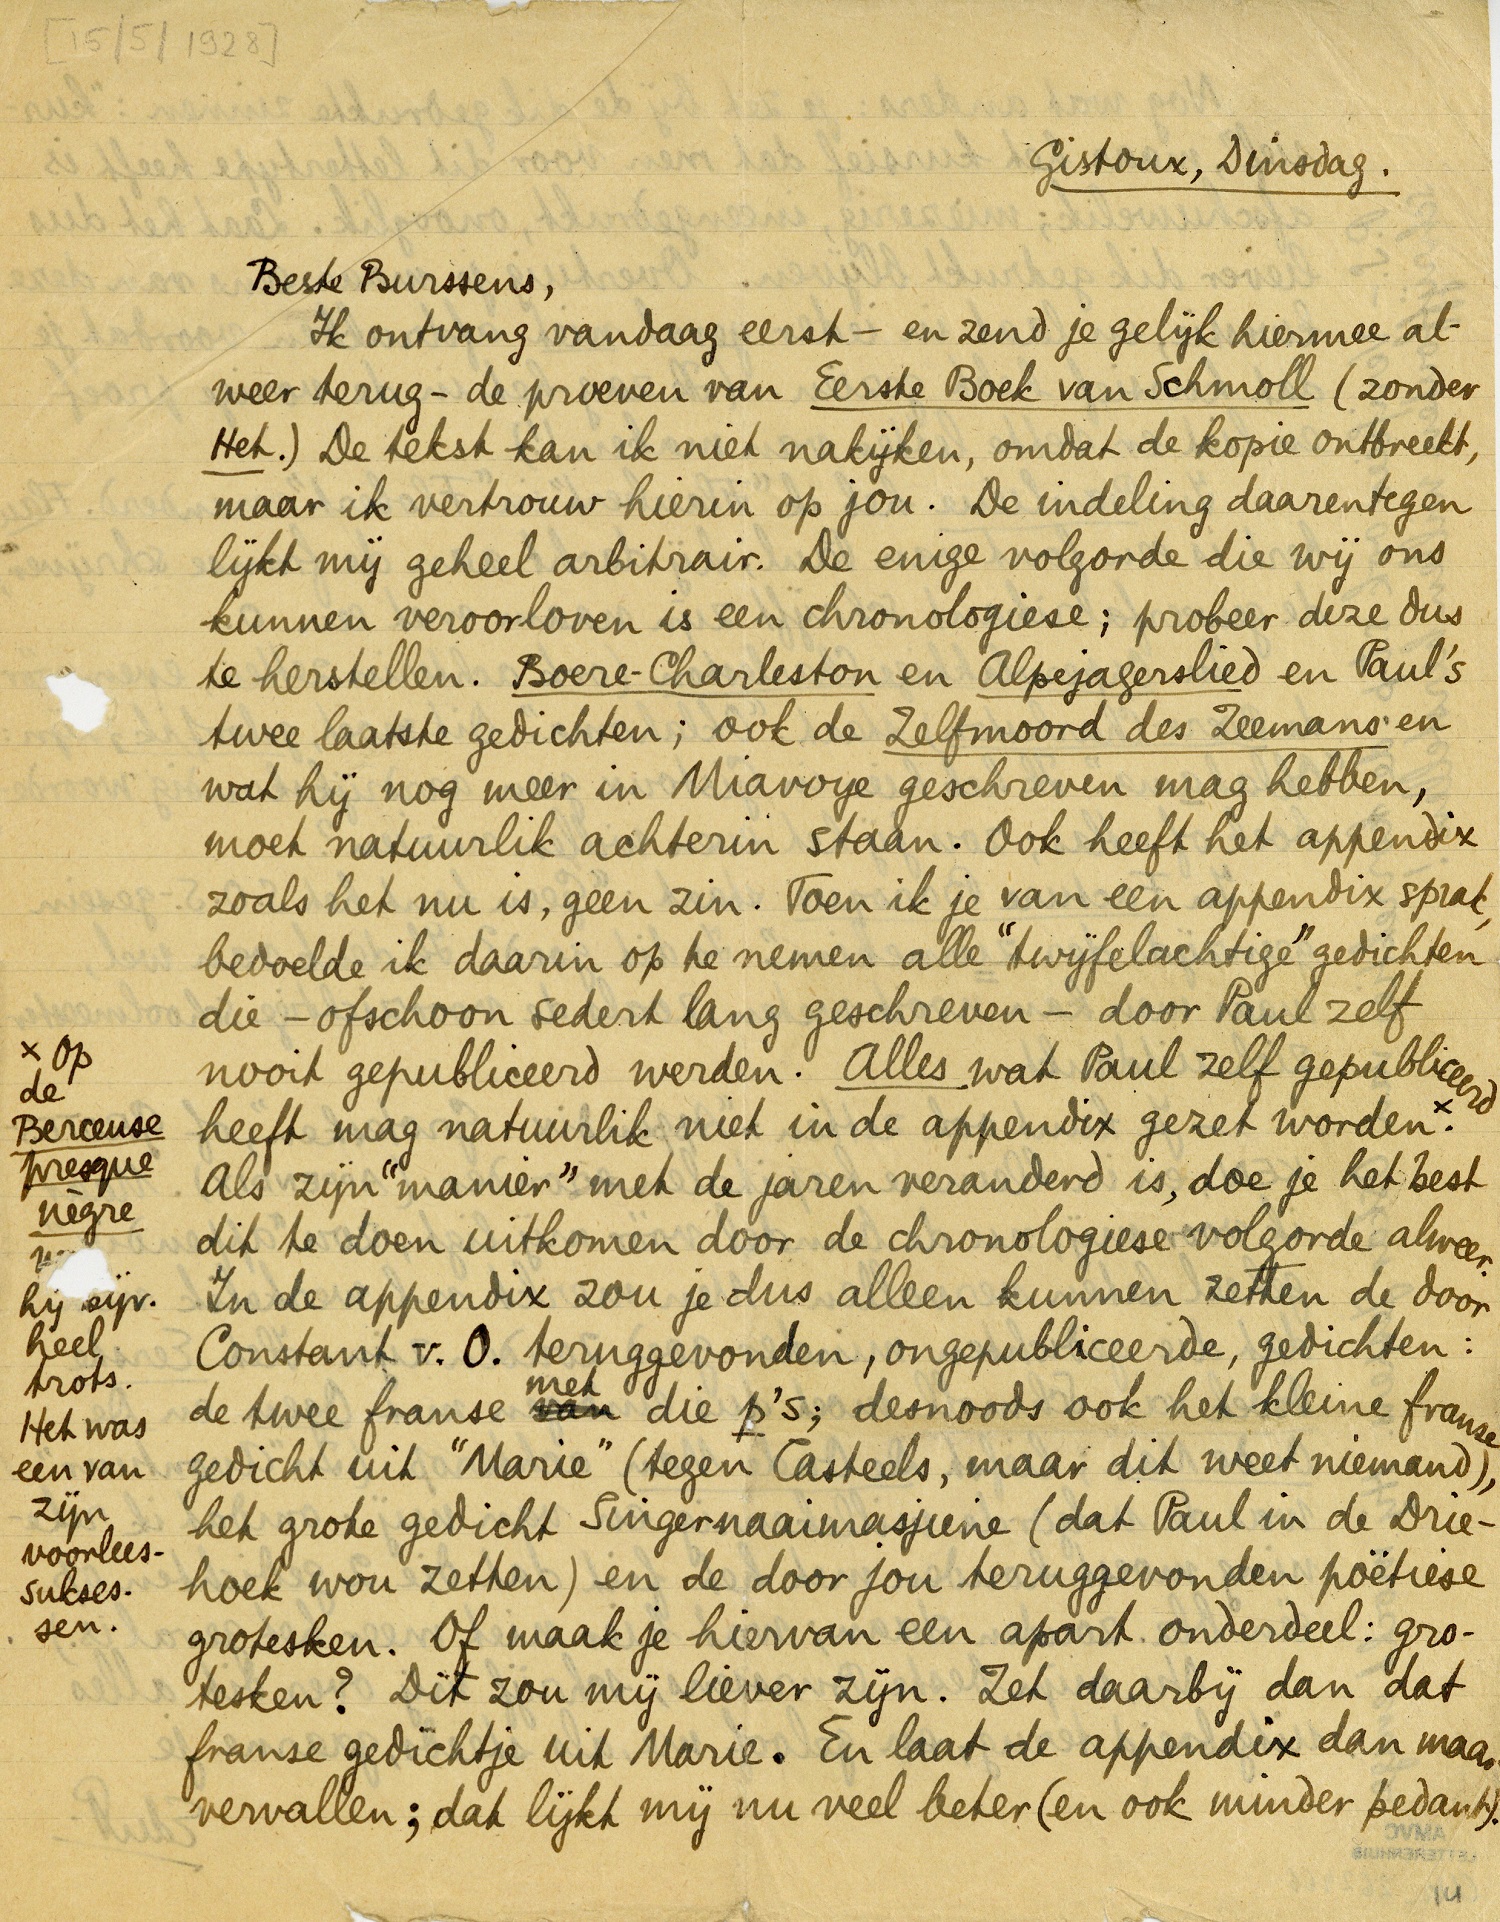 [15/5/1928]
Gistoux, Dinsdag.
Beste Burssens,
Ik ontvang vandaag eerst – en zend je gelijk hiermee al-
weer terug – de proeven van Eerste Boek van Schmoll (zonder
Het.) De tekst kan ik niet nakijken, omdat de kopie ontbreekt,
maar ik vertrouw hierin op jou. De indeling daarentegen
lijkt mij geheel arbitrair. De enige volgorde die wij ons
kunnen veroorloven is een chronologiese; probeer deze dus
te herstellen. Boere-Charleston en Alpejagerslied en Paul's
twee laatste gedichten; ook de Zelfmoord des Zeemans en
wat hij nog meer in Miavoye geschreven mag hebben,
moet natuurlik achterin staan. Ook heeft het appendix
zoals het nu is, geen zin. Toen ik je van een appendix sprak,
bedoelde ik daarin op te nemen alle "twijfelachtige" gedichten
die – ofschoon sedert lang geschreven – door Paul zelf
nooit gepubliceerd werden. Alles wat Paul zelf gepubliceerd
heeft mag natuurlik niet in de appendix gezet worden.×
Als zijn "manier" met de jaren veranderd is, doe je het best
dit te doen uitkomen door de chronologiese volgorde alweer.
In de appendix zou je dus alleen kunnen zetten de door
Constant v. O. teruggevonden, ongepubliceerde, gedichten:
de twee franse van met die p's; desnoods ook het kleine franse
gedicht uit "Marie" (tegen Casteels, maar dit weet niemand),
het grote gedicht Singernaaimasjiene (dat Paul in de Drie-
hoek wou zetten) en de door jou teruggevonden poëtiese
grotesken. Of maak je hiervan een apart onderdeel: gro-
tesken? Dit zou mij liever zijn. Zet daarbij dan dat
franse gedichtje uit Marie. En laat de appendix dan maar
vervallen; dat lijkt mij nu veel beter (en ook minder pedant).
× Op
de
Berceuse
presque
nègre
hij zijn
heel
trots.
Het was
een van
zijn
voorlees-
sukses-
sen.
AMVC
LETTERENHUIS
14